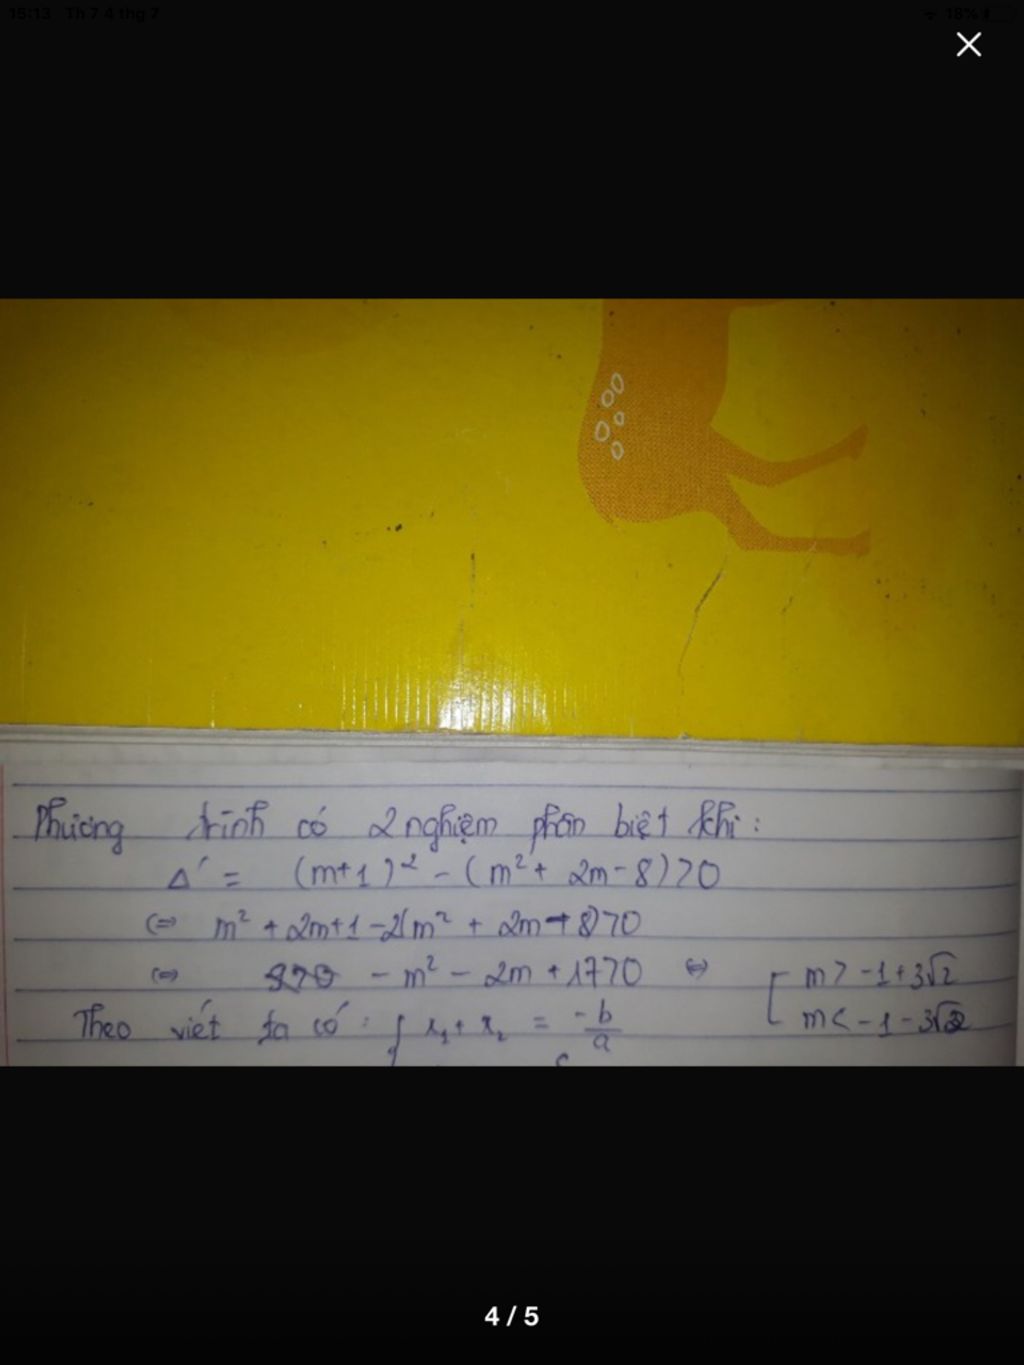 15:13 Th 7 4 thg 7
18%
Phương trình có 2 nghiệm phân biệt khi:
Δ' = (m+1)² - (m² + 2m - 8) > 0
(=) m² + 2m + 1 - 2(m² + 2m + 8) > 0
(=) - m² - 2m + 17 > 0 (=) [ m > -1 + 3√2
m < -1 - 3√2
Theo viét ta có: { x₁ + x₂ = -b/a
4 / 5